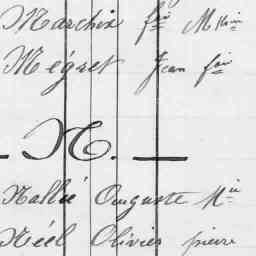 Marchix fois M
Mégret Jean fois
N.
Nallié Auguste Mie
Néel Olivier pierre